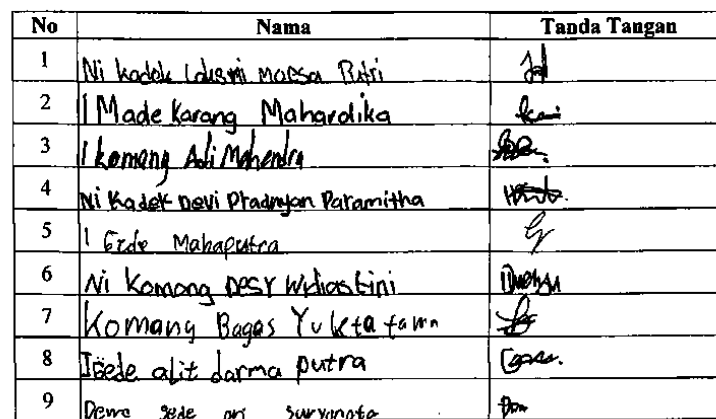 No Nama Tanda Tangan
1 Ni kadek Laksmi Maesa Putri
2 I Made Karang Mahardika
3 I komang Adi Mahendra
4 Ni Kadek Devi Pradnyan Paramitha
5 I Gede Mahaputra
6 Ni Komang Desy Widiastini
7 Komang Bagas Yukta tama
8 I Gede alit darma putra
9 Dewa gede ari suryanata